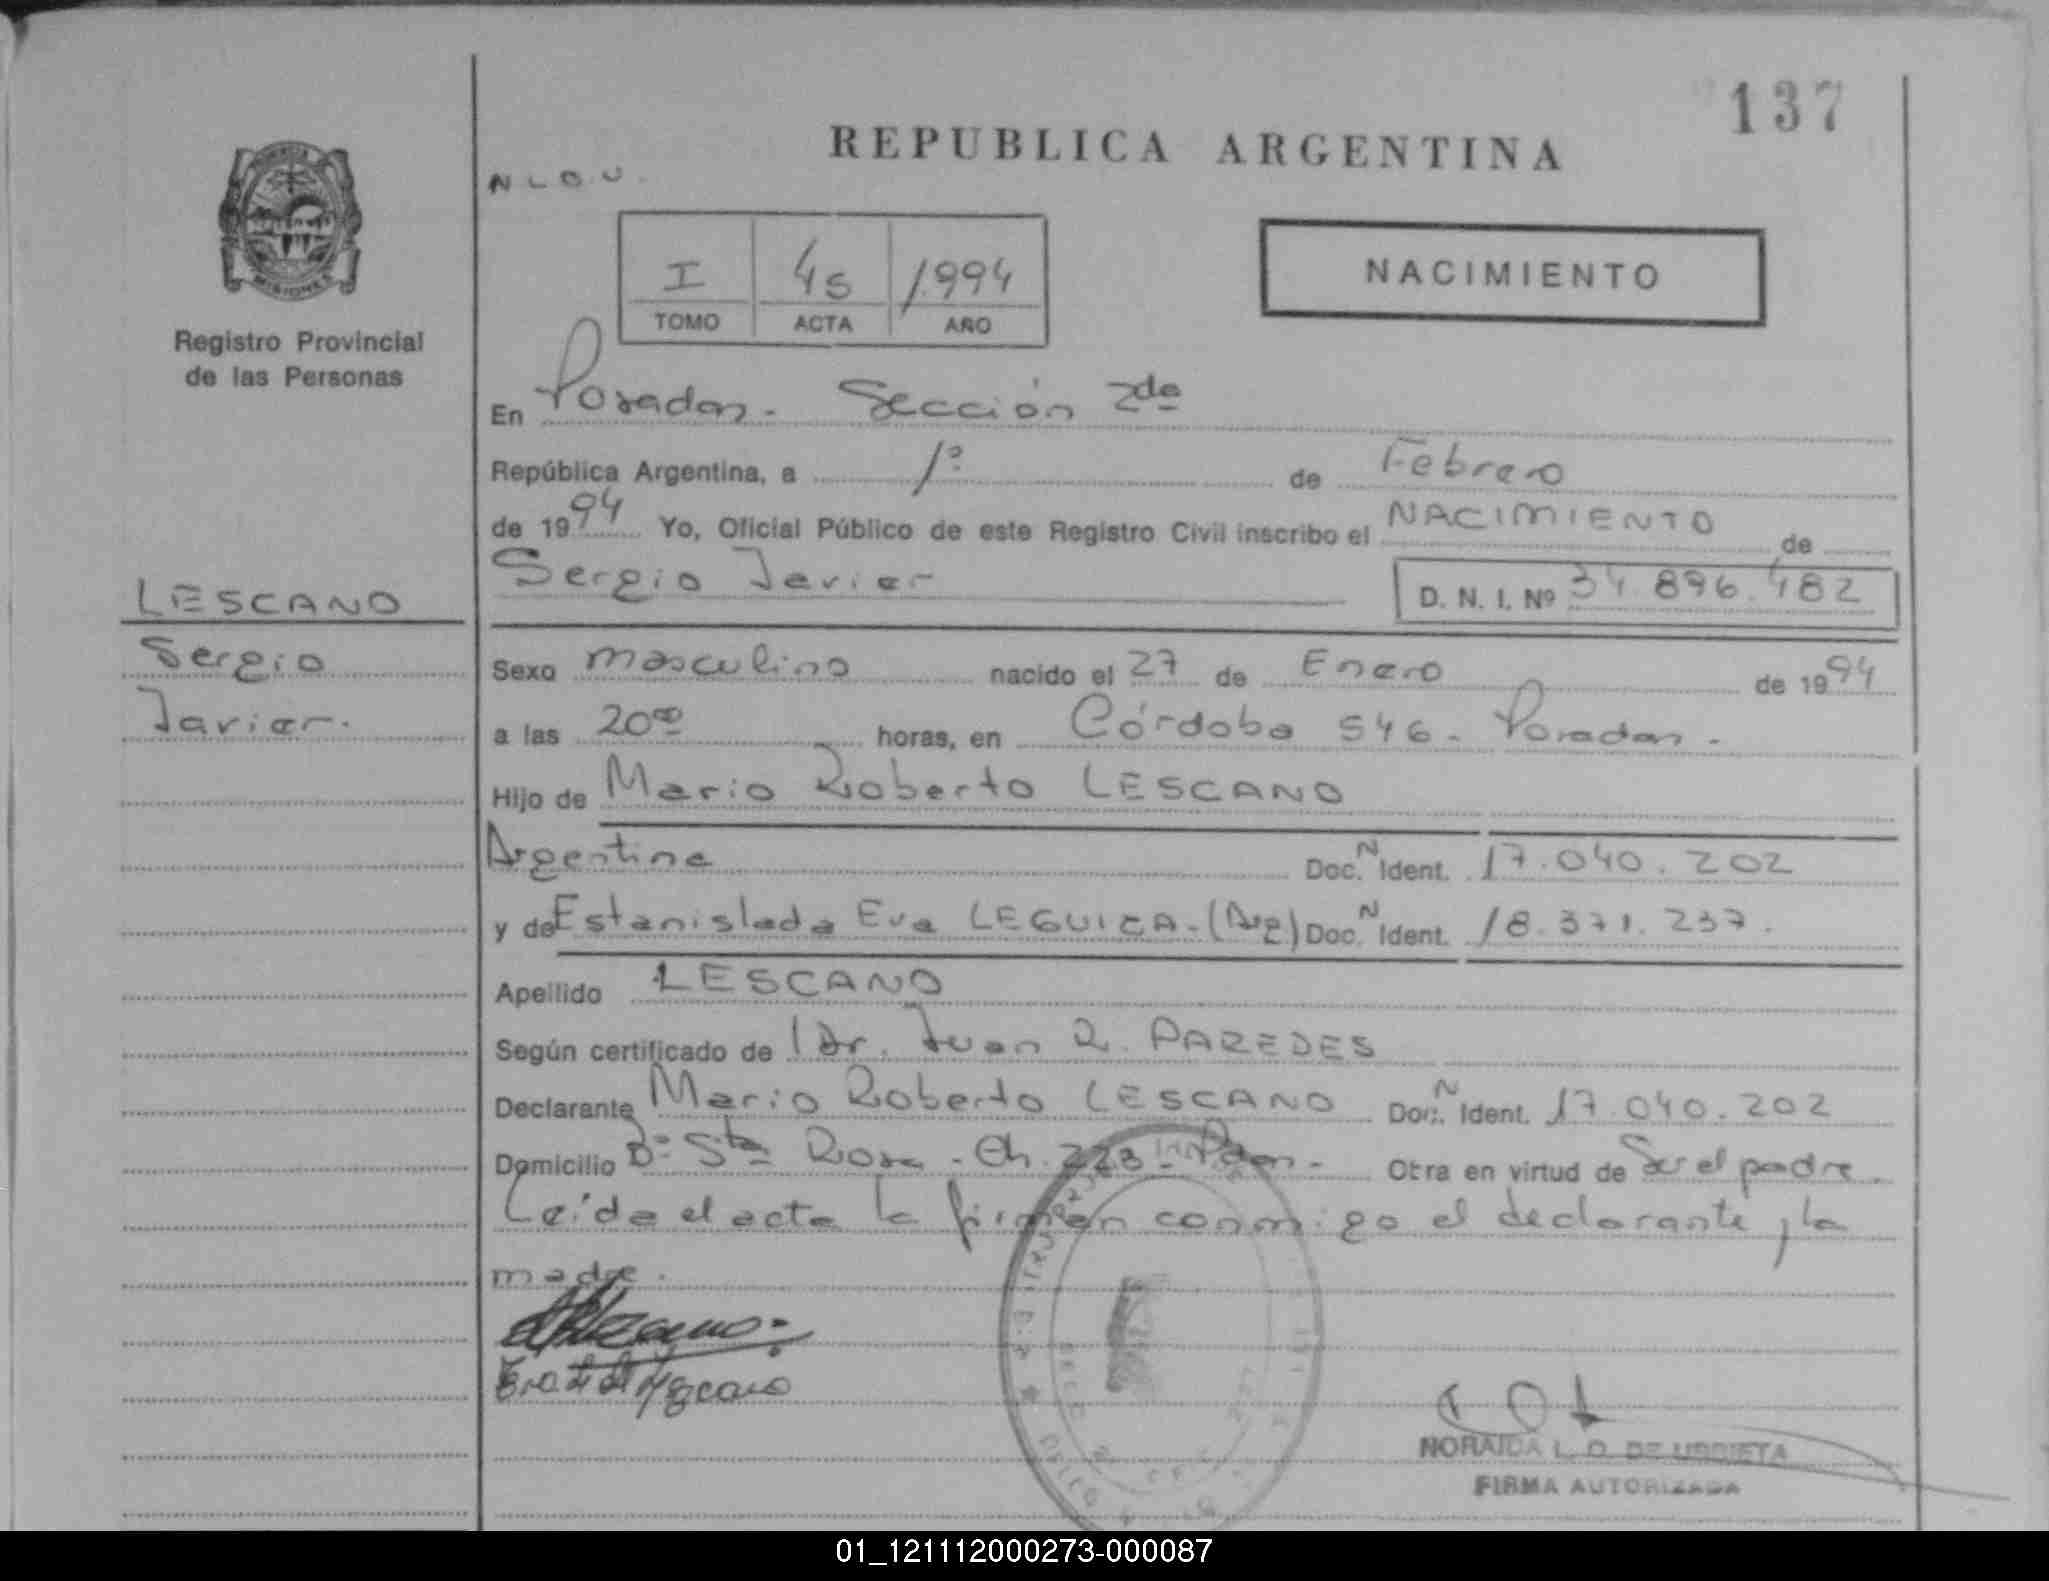 137
REPUBLICA ARGENTINA
N L O. U.
MISIONES
Registro Provincial
de las Personas
I 45 1.994
TOMO ACTA AÑO
NACIMIENTO
En Posadas. Sección 2da
República Argentina, a 1º de Febrero
de 1994 Yo, Oficial Público de este Registro Civil inscribo el NACIMIENTO de
Sergio Javier D. N. I. Nº 34.896.482
LESCANO
Sergio
Javier.
Sexo masculino nacido el 27 de Enero de 1994
a las 20⁰⁰ horas, en Córdoba 546. Posadas.
Hijo de Mario Roberto LESCANO
Argentina Doc. N Ident. 17.040.202
y de Estanislada Eva LEGUICA. (Arg) Doc. N Ident. 18.371.237.
Apellido LESCANO
Según certificado de Dr. Juan R. PAREDES
Declarante Mario Roberto LESCANO Doc. N Ident. 17.040.202
Domicilio Bº Sta Rosa - Ch. 223 - Pdas. Otra en virtud de Ser el padre.
Leída el acta la firman conmigo el declarante y la
madre.
NORAIDA L. O. DE URRIETA
FIRMA AUTORIZADA
01_121112000273-000087